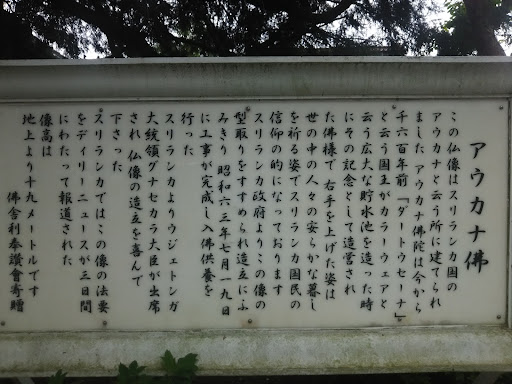 アウカナ佛
この仏像はスリランカ国の
アウカナと云う所に建てられ
ました アウカナ佛陀は今から
千六百年前「ダートウセーナ」
と云う国王がカラーウェアと
云う広大な貯水池を造った時
にその記念として造営され
た佛様で 右手を上げた姿は
世の中の人々の安らかな暮し
を祈る姿でスリランカ国民の
信仰の的になっております
スリランカ政府よりこの像の
型取りをすすめられ造立にふ
みきり 昭和六三年七月一九日
に工事が完成し入佛供養を
行った
スリランカよりウジェトンガ
大統領グナセカラ大臣が出席
され 仏像の造立を喜んで
下さった
スリランカではこの像の法要
をデイリーニュースが三日間
にわたって報道された
像高は
地上より十九メートルです
佛舎利奉讃會寄贈